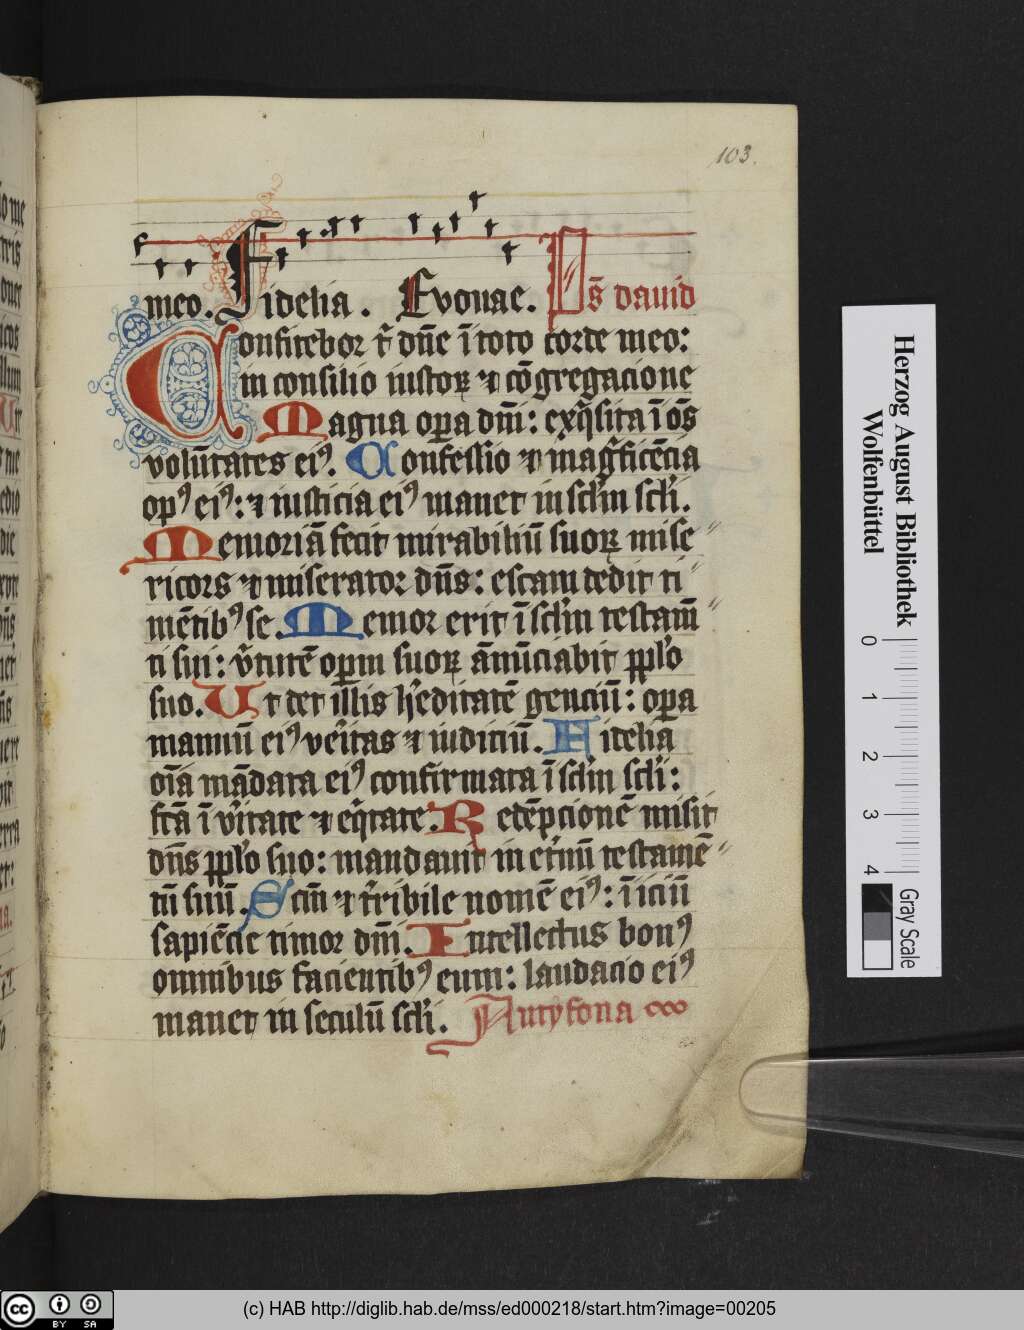 103.
meo. Fidelia. Evouae. Ps̄ dauid
Confitebor t̄ dn̄e ī toto corde meo:
in consilio iustoꝝ ⁊ cōgregacione
Magna opa dm̄i: exq̄sita ī oēs
volūtates eiꝰ. Confessio ⁊ mag̅ficēcia
opꝰ eiꝰ: ⁊ iusticia eiꝰ manet in sclm̄ scli.
Memoriā fecit mirabiliū suoꝝ mise
ricors ⁊ miserator dn̄s: escam dedit ti
mētibꝰ se. Memor erit ī sclm̄ testam̄
ti sui: v̓tutē opm̄ suoꝝ ānūciabit pplo
suo. Ut det illis h̓editatē genciū: opa
manuū eiꝰ ve̓itas ⁊ iudiciū. Fidelia
oīa mādata eiꝰ confirmata ī sclm̄ scli:
fcā ī v̓itate ⁊ eq̄tate. Redēpcionē misit
dn̄s pplo suo: mandauit in et̓nū testamē
tū suū. Scm̄ ⁊ t̓ribile nomē eiꝰ: īiciū
sapiēcie timor dm̄i. Intellectus bonꝰ
omnibus facientibꝰ eum: laudacio eiꝰ
manet in seculū scli. Antyfona
Herzog August Bibliothek
Wolfenbüttel
0 1 2 3 4
Gray Scale
cc BY SA
(c) HAB http://diglib.hab.de/mss/ed000218/start.htm?image=00205